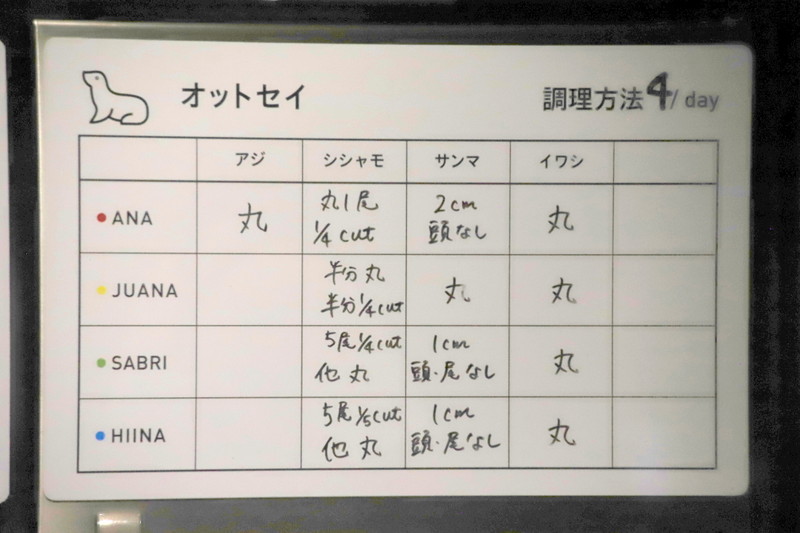 オットセイ
調理方法 4/day
アジ シシャモ サンマ イワシ
ANA 丸 丸1尾 1/4 cut 2cm 頭なし 丸
JUANA 半分 丸 半分 1/4 cut 丸 丸
SABRI 5尾 1/4 cut 他 丸 1cm 頭・尾なし 丸
HIINA 5尾 1/5 cut 他 丸 1cm 頭・尾なし 丸